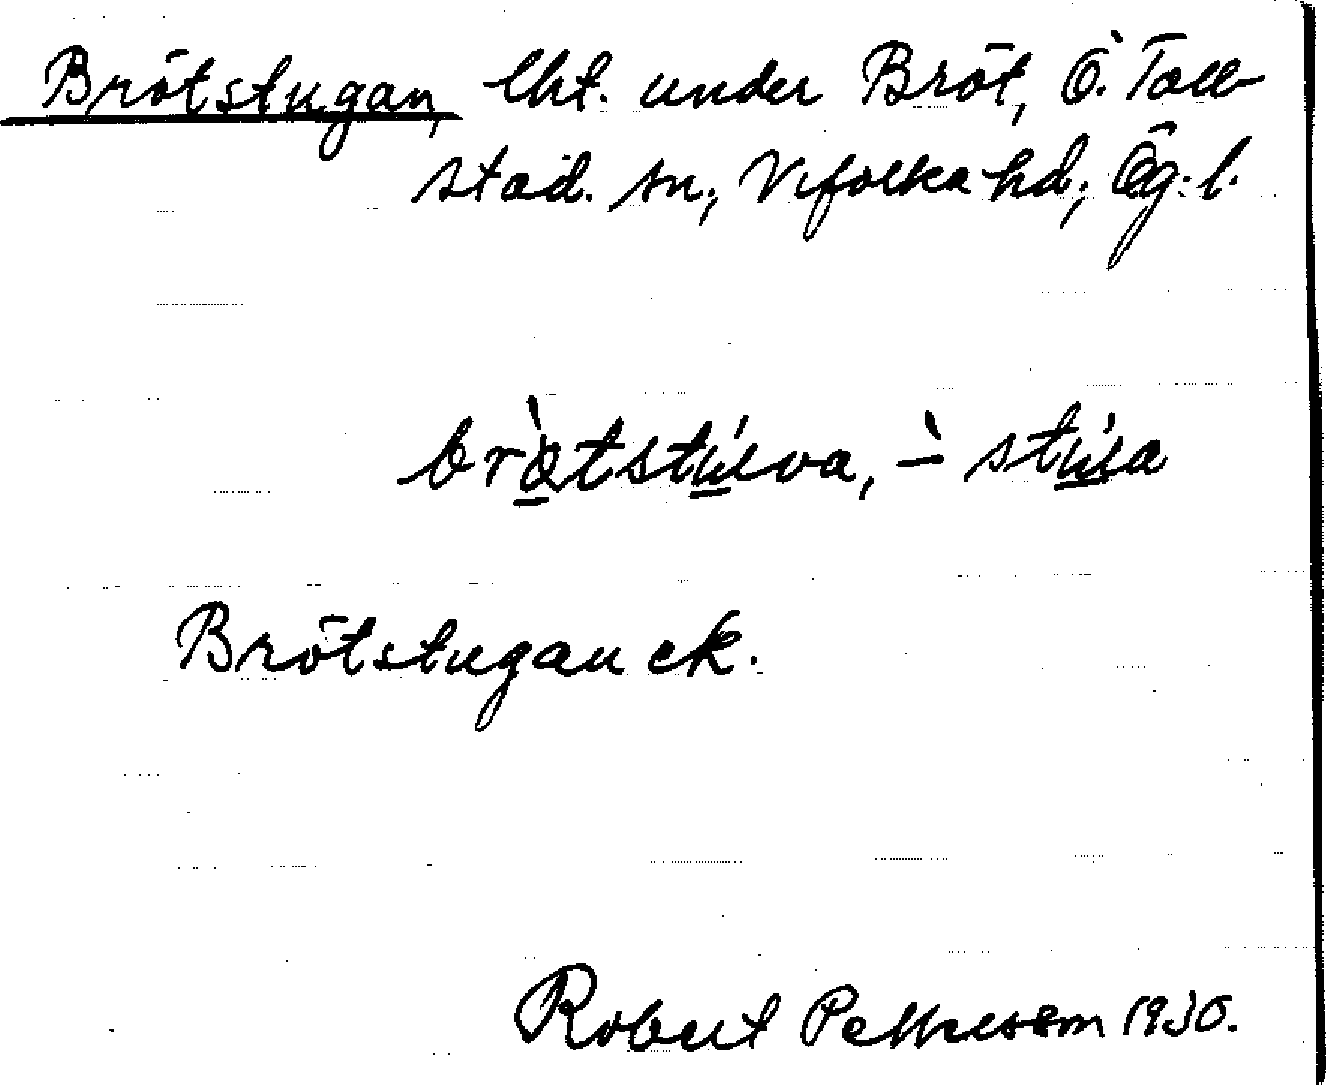 Brötstugan, lht. under Bröt, Ö. Toll-
stad. sn., Vifolka hd., Ög. l.
bròtstúva, -̀ stúa
Brötstugan ek.
Robert Pettersson 1930.